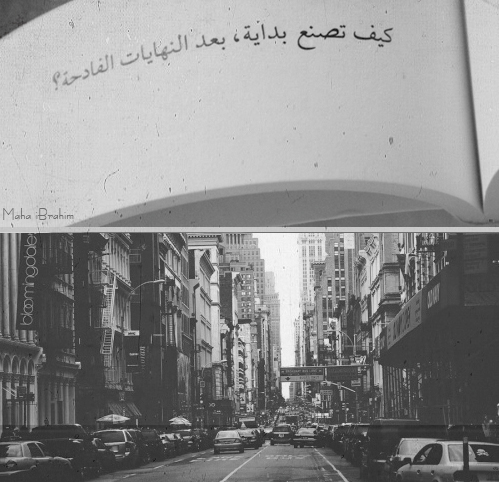 كيف تصنع بداية، بعد النهايات الفادحة؟
Maha iBrahim
bloomingdale